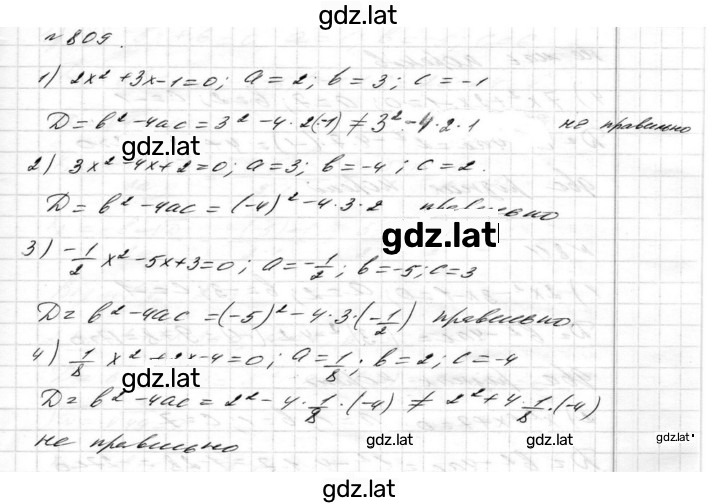 gdz.lat
№ 809.
1) 2x² + 3x - 1 = 0; a = 2; b = 3; c = -1
D = b² - 4ac = 3² - 4·2(-1) ≠ 3² - 4·2·1 не правильно
gdz.lat
2) 3x² - 4x + 2 = 0; a = 3; b = -4; c = 2.
D = b² - 4ac = (-4)² - 4·3·2
gdz.lat
3) -1/2 x² - 5x + 3 = 0; a = -1/2; b = -5; c = 3
D = b² - 4ac = (-5)² - 4·3·(-1/2) правильно.
4) 1/8 x² + 2x - 4 = 0; a = 1/8; b = 2; c = -4
gdz.lat
D = b² - 4ac = 2² - 4·1/8·(-4) ≠ 2² + 4·1/8·(-4)
не правильно gdz.lat gdz.lat gdz.lat
gdz.lat